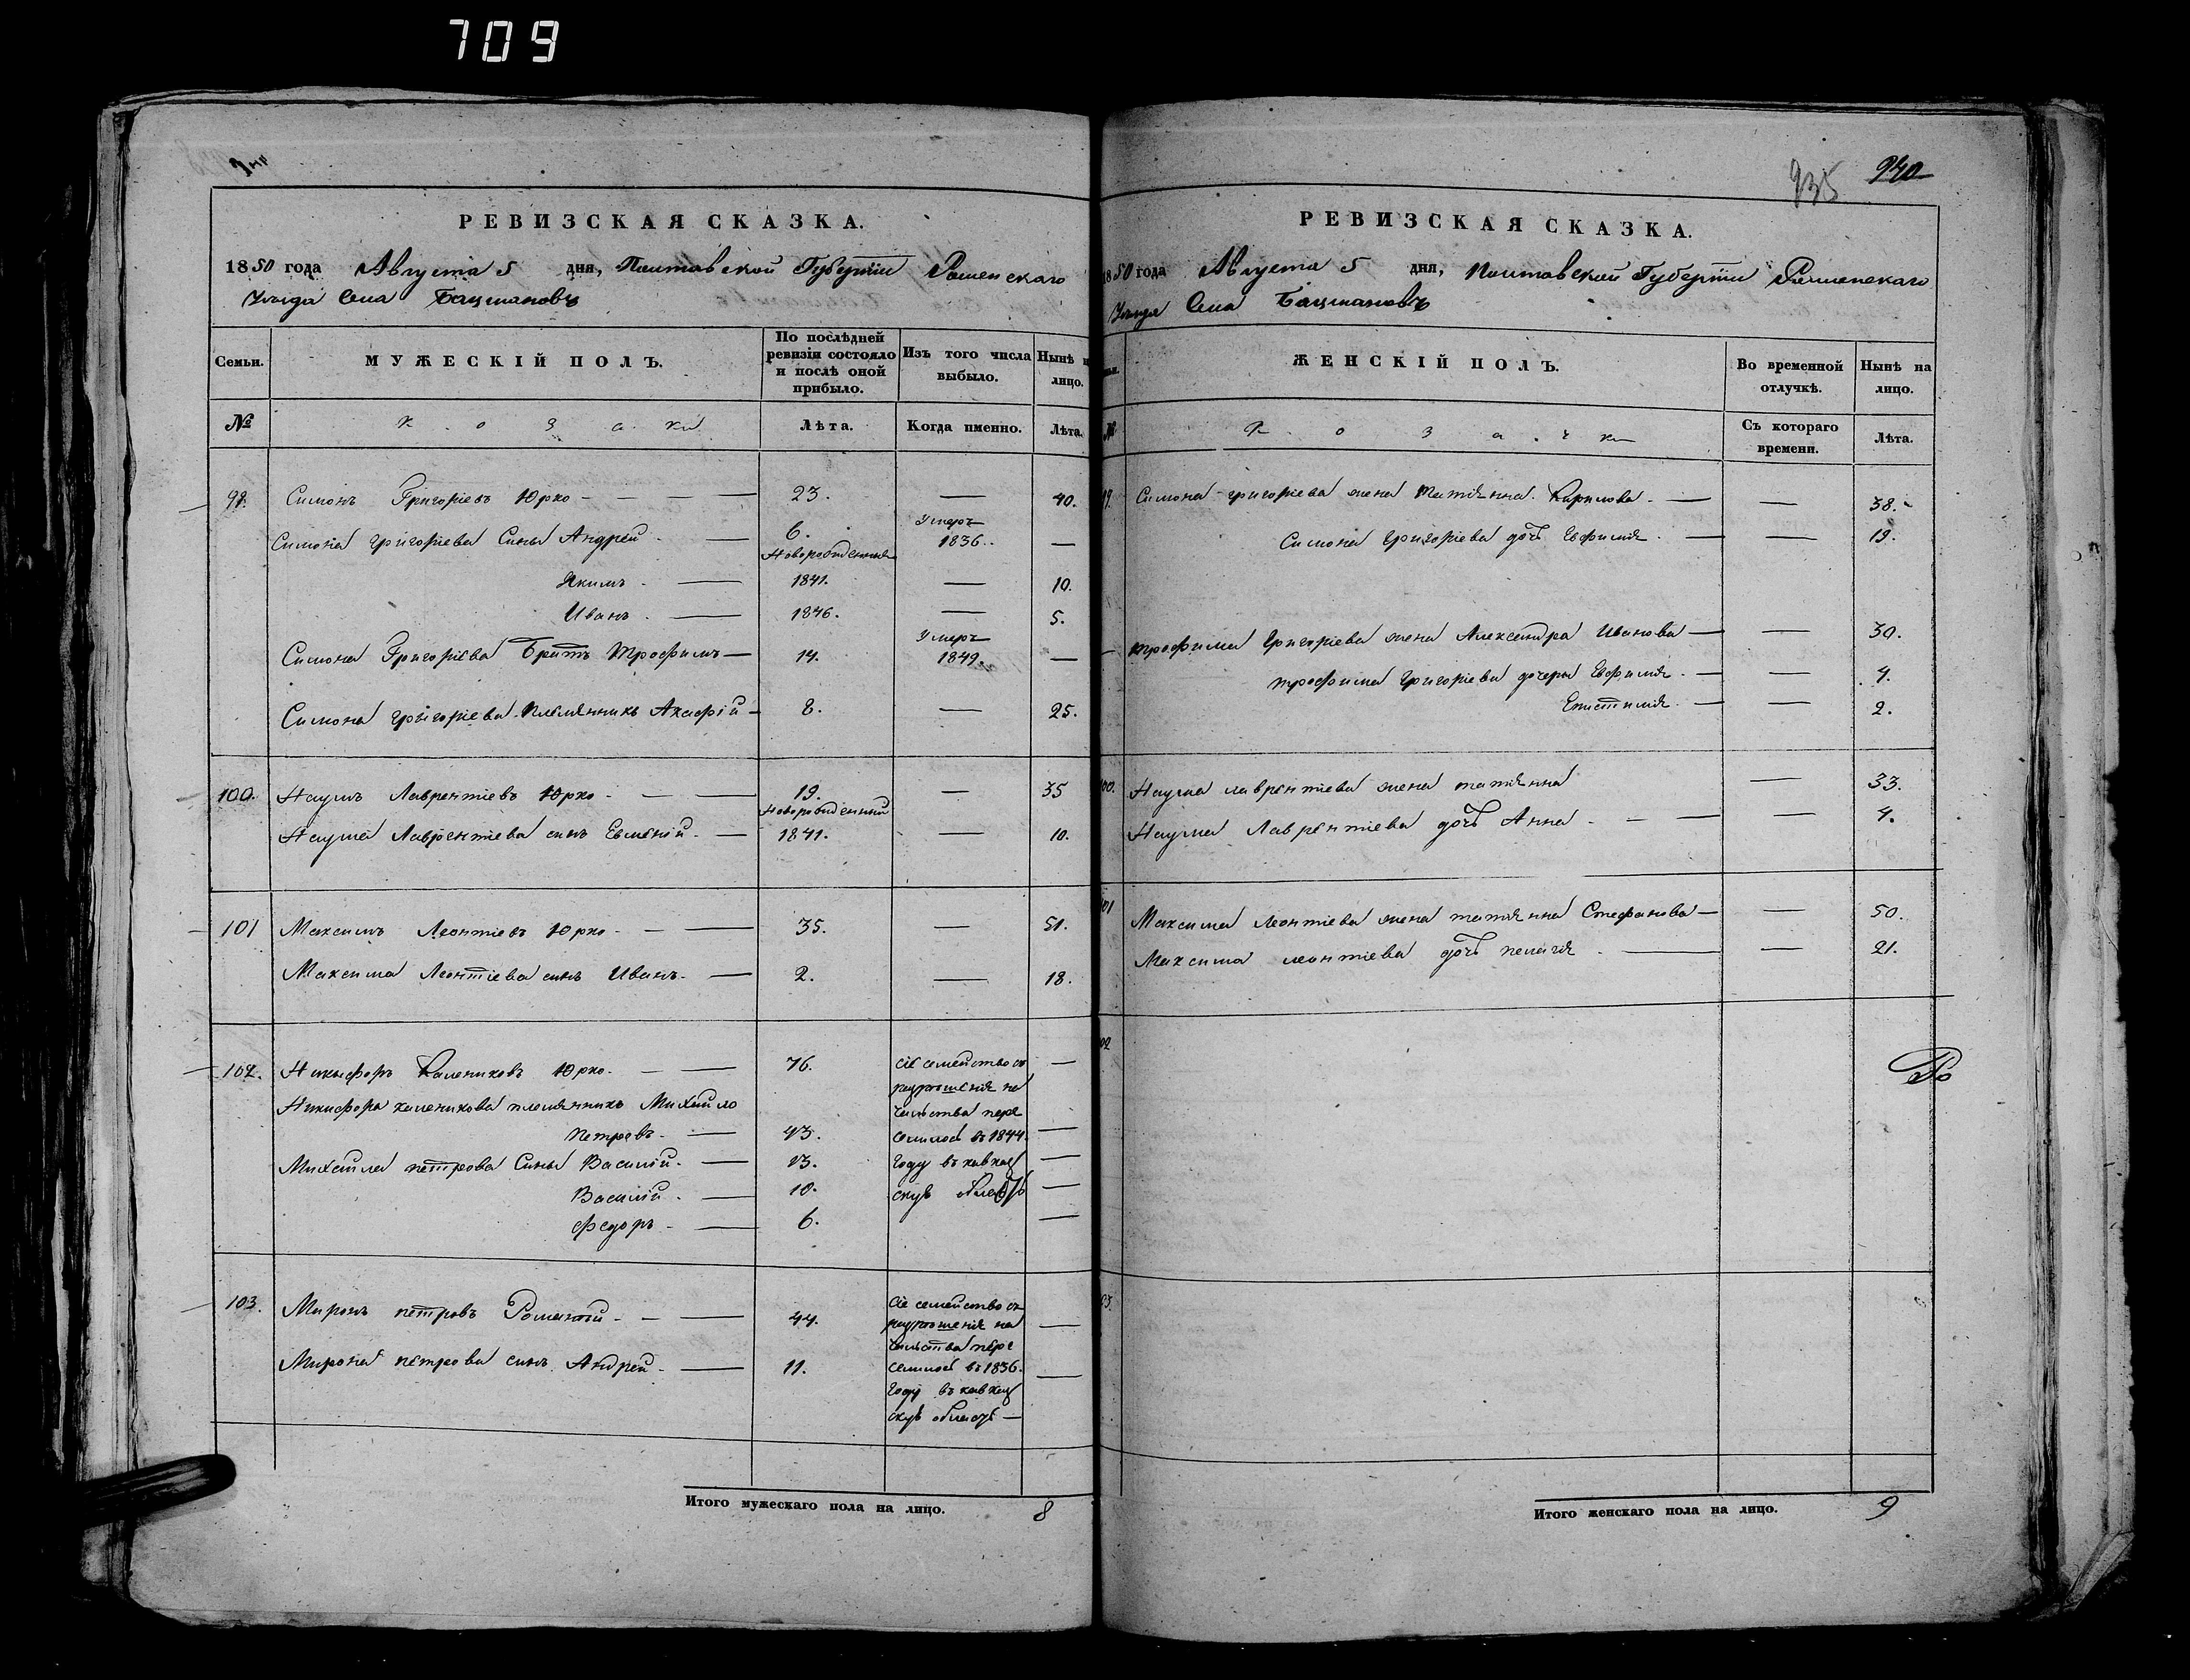 709
935 940
РЕВИЗСКАЯ СКАЗКА.
1850 года Августа 5 дня, Полтавской Губерніи Роменскаго
Уезда Села Бацмановъ
Семьи. МУЖЕСКІЙ ПОЛЪ. По послѣдней ревизіи состояло и послѣ оной прибыло. Изъ того числа выбыло. Нынѣ н лицо.
№ Козаки Лѣта. Когда именно. Лѣта.
Симонъ Григоріевъ Юрко - — — — 23. — 40.
Симона Григоріева Сины Андрей - — 6. Умеръ 1836. —
Новорожденныя
Якимъ - — 1841. — 10.
Иванъ - — 1846. — 5.
Симона Григоріева Братъ Трофимъ — 14. Умеръ 1849. —
Симона Григоріева Племянникъ Акафій — 8. — 25.
100. Наумъ Лаврентіевъ Юрко - — — 19. — 35
Новорожденный
Наума Лаврентіева синъ Евменій - — 1841. — 10.
101 Максимъ Леонтіевъ Юрко - — — 35. — 51.
Максима Леонтіева синъ Иванъ - — 2. — 18.
102. Никифоръ Калениковъ Юрко - — — 76. Сіе семейство съ —
Никифора каленикова племянникъ Михайло
Петровъ - — 43. —
Михайла петрова Сины Василій - — 13. —
Василій - — 10. —
Федоръ - — 6. —
разрошенія на
чальства пере
селилось въ 1844.
Году въ кавказ
скую область
103. Миронъ петровъ - — — 44. —
Мирона петрова синъ Андрей - — 11. —
Сіе семейство съ
разрошенія на
чальства пере
селилось въ 1836.
Году въ кавказ
скую область —
Итого мужескаго пола на лицо. 8
РЕВИЗСКАЯ СКАЗКА.
1850 года Августа 5 дня, Полтавской Губерніи Роменскаго
Уезда Села Бацмановъ
ЖЕНСКІЙ ПОЛЪ. Во временной отлучкѣ. Нынѣ на лицо.
№ Козачки Съ котораго времени. Лѣта.
Симона Григоріева жена Татіянна Кирилова - — — 38.
Симона Григоріева дочь Евфимія - — — 19.
Трофима Григоріева жена Александра Иванова — — 30.
Трофима Григоріева дочери Евфимія - — — 4.
Епистимія - — — 2.
100. Наума лаврентіева жена татіянна — 33.
Наума Лаврентіева дочь Анна - — — — 4.
101 Максима Леонтіева жена татіянна Стефанова — — 50.
Максима леонтіева дочь пелагія - — — 21.
102
103.
Итого женскаго пола на лицо. 9